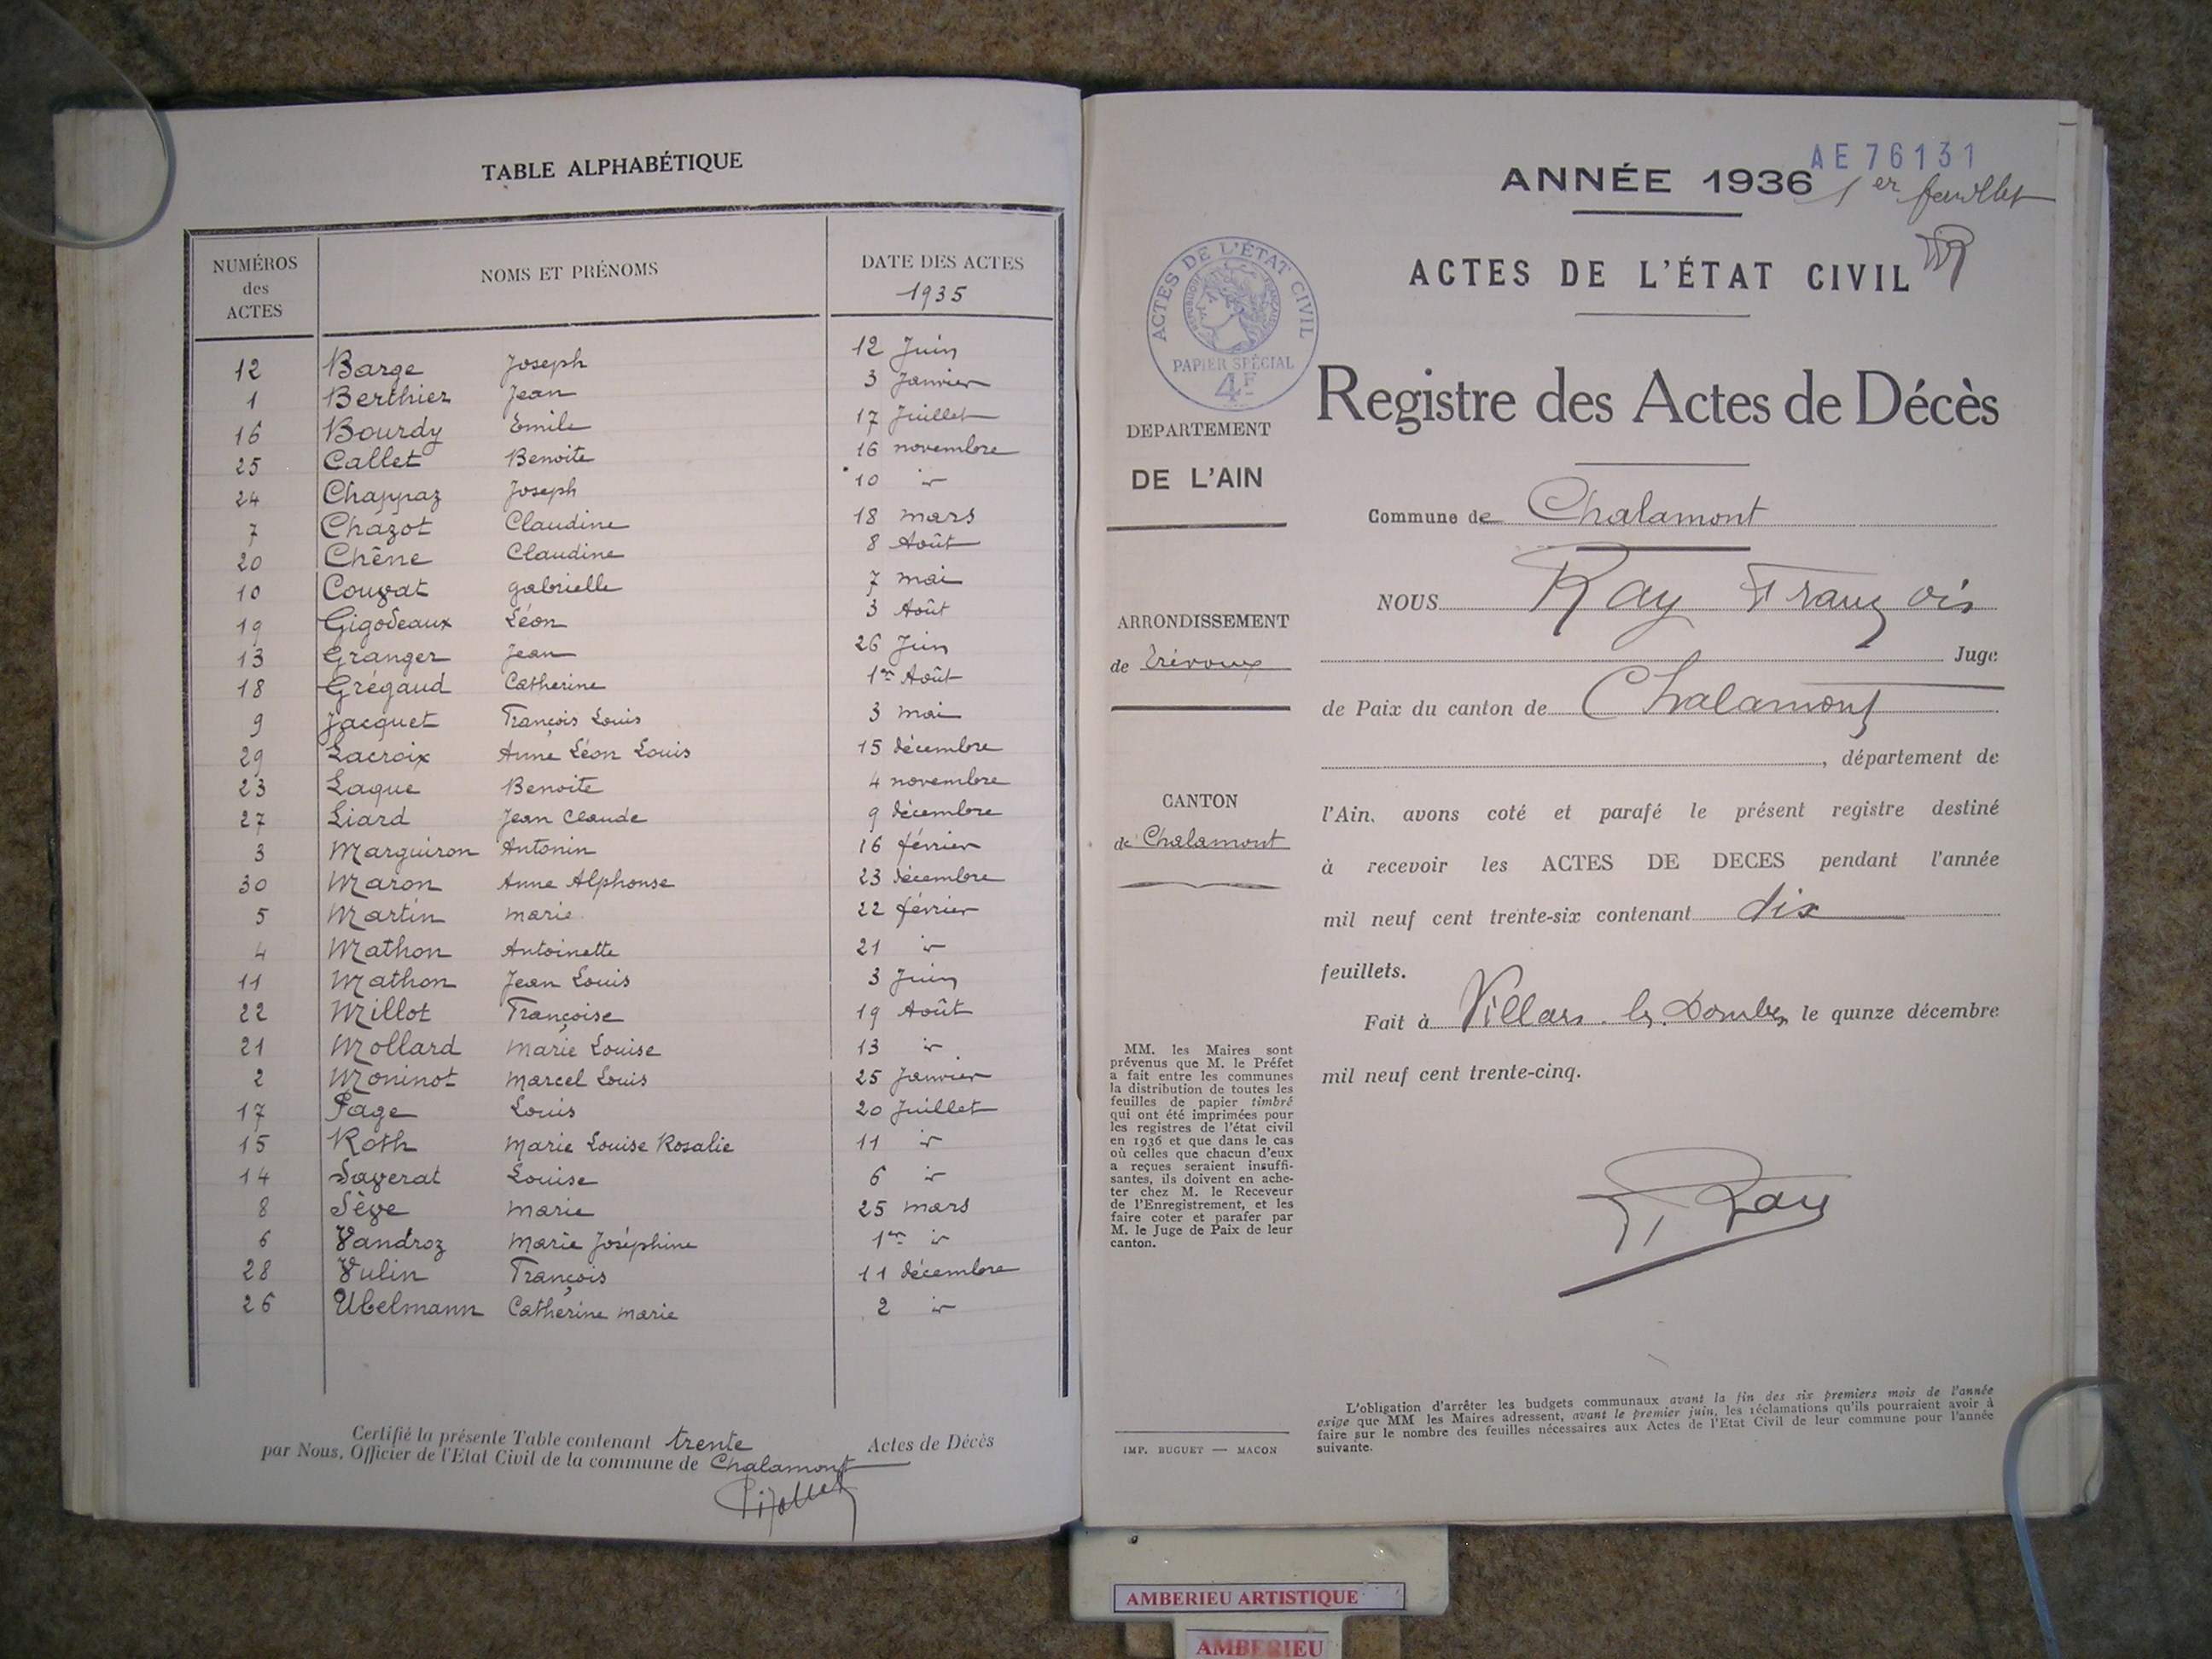 TABLE ALPHABÉTIQUE
NUMÉROS des ACTES
NOMS ET PRÉNOMS
DATE DES ACTES
1935
12 Barge Joseph 12 Juin
1 Berthier Jean 3 Janvier
16 Bourdy Emile 17 Juillet
25 Callet Benoite 16 novembre
24 Chappaz Joseph 10 id
7 Chazot Claudine 18 mars
20 Chêne Claudine 8 Août
10 Couvat gabrielle 7 mai
19 Gigodeaux Léon 3 Août
13 Granger Jean 26 Juin
18 Grégaud Catherine 1er Août
9 Jacquet François Louis 3 mai
29 Lacroix Anne Léon Louis 15 décembre
23 Laque Benoite 4 novembre
27 Liard Jean Claude 9 décembre
3 Marguiron Antonin 16 février
30 Maron Anne Alphonse 23 décembre
5 Martin marie 22 février
4 Mathon Antoinette 21 id
11 Mathon Jean Louis 3 Juin
22 Millot Françoise 19 Août
21 Mollard marie Louise 13 id
2 Moninot marcel Louis 25 Janvier
17 Page Louis 20 Juillet
15 Roth Marie Louise Rosalie 11 id
14 Saverat Louise 6 id
8 Sève marie 25 mars
6 Vandroz marie Joséphine 1er id
28 Vulin François 11 décembre
26 Ubelmann Catherine marie 2 id
Certifié la présente Table contenant trente Actes de Décès
par Nous, Officier de l'Etat Civil de la commune de Chalamont
AE 76131
ANNÉE 1936 1er feuillet
ACTES DE L'ÉTAT CIVIL
ACTES DE L'ÉTAT CIVIL
RÉPUBLIQUE FRANÇAISE
PAPIER SPÉCIAL
4F
Registre des Actes de Décès
DEPARTEMENT
DE L'AIN
ARRONDISSEMENT
de Trévoux
CANTON
de Chalamont
MM. les Maires sont
prévenus que M. le Préfet
a fait entre les communes
la distribution de toutes les
feuilles de papier timbré
qui ont été imprimées pour
les registres de l'état civil
en 1936 et que dans le cas
où celles que chacun d'eux
a reçues seraient insuffi-
santes, ils doivent en ache-
ter chez M. le Receveur
de l'Enregistrement, et les
faire coter et parafer par
M. le Juge de Paix de leur
canton.
IMP. BUGUET — MACON
Commune de Chalamont
NOUS Ray François
Juge
de Paix du canton de Chalamont
, département de
l'Ain, avons coté et parafé le présent registre destiné
à recevoir les ACTES DE DECES pendant l'année
mil neuf cent trente-six contenant dix
feuillets.
Fait à Villars les Dombes, le quinze décembre
mil neuf cent trente-cinq.
F. Ray
L'obligation d'arrêter les budgets communaux avant la fin des six premiers mois de l'année
exige que MM les Maires adressent, avant le premier juin, les réclamations qu'ils pourraient avoir à
faire sur le nombre des feuilles nécessaires aux Actes de l'Etat Civil de leur commune pour l'année
suivante.
AMBERIEU ARTISTIQUE
AMBERIEU